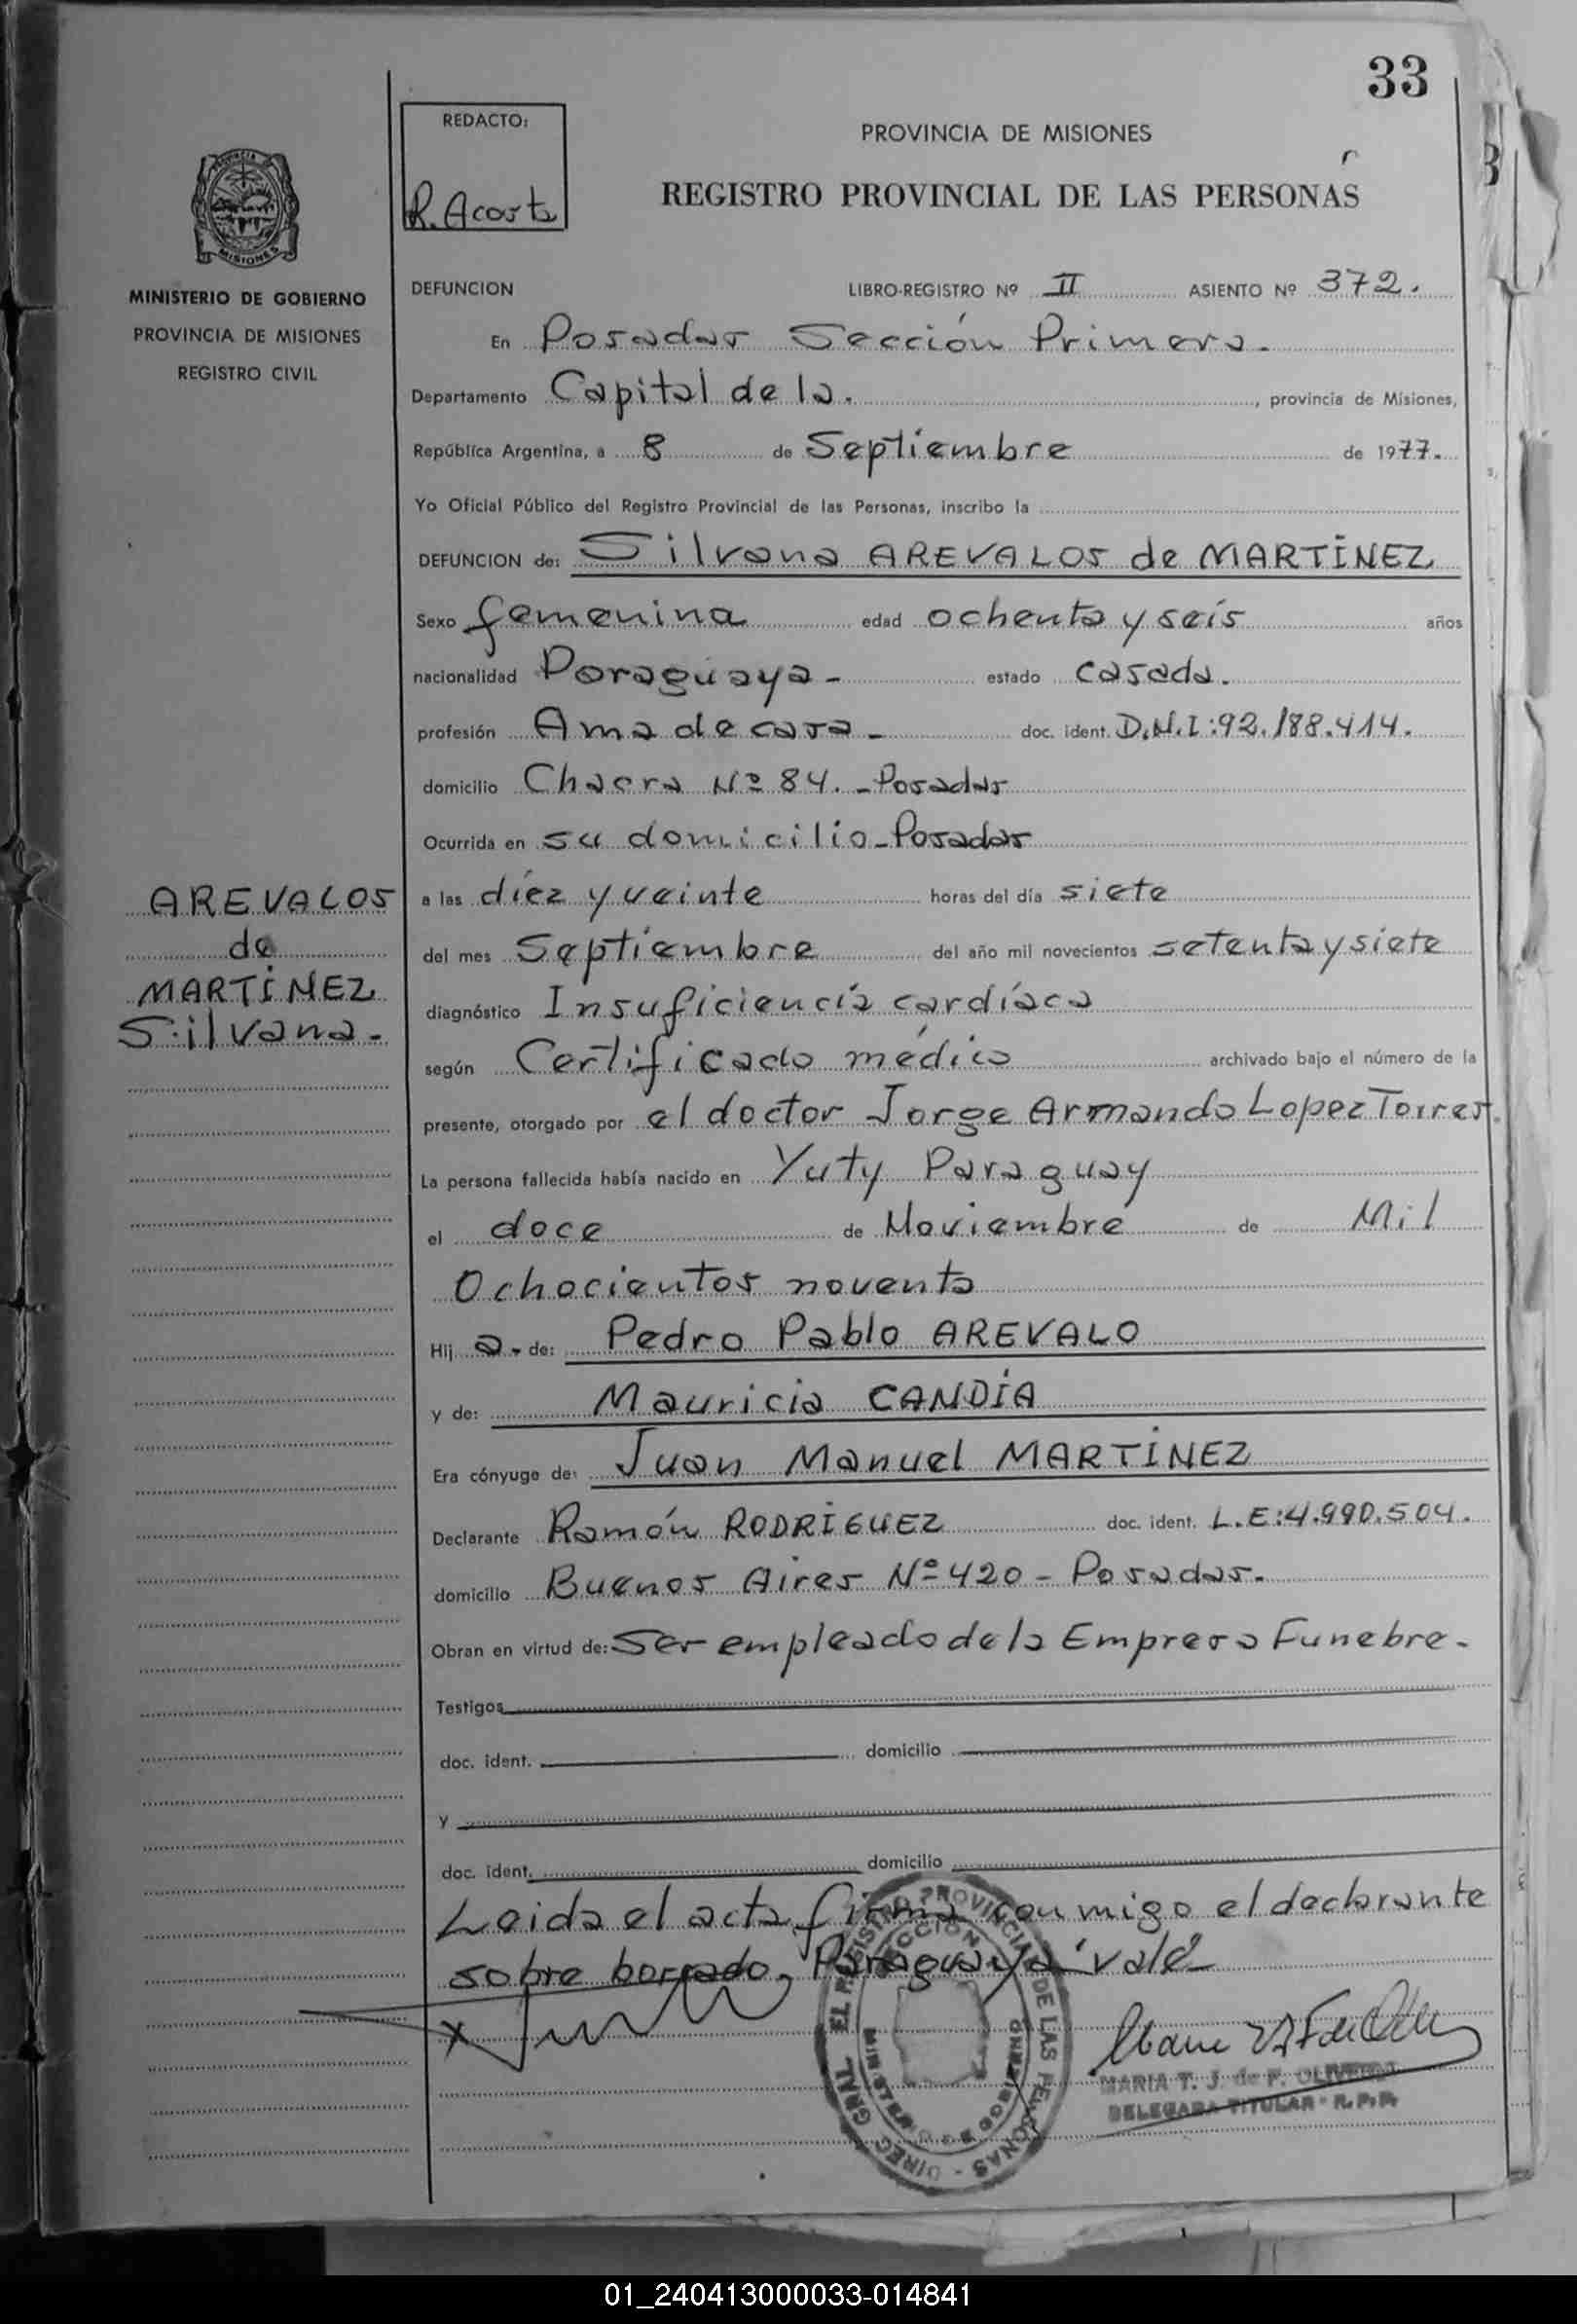 33
REDACTO:
R. Acosta
PROVINCIA DE MISIONES
REGISTRO PROVINCIAL DE LAS PERSONAS
PROVINCIA DE
MISIONES
MINISTERIO DE GOBIERNO
PROVINCIA DE MISIONES
REGISTRO CIVIL
DEFUNCION LIBRO-REGISTRO Nº II ASIENTO Nº 372.
En Posadas Sección Primera.
Departamento Capital de la. , provincia de Misiones,
República Argentina, a 8 de Septiembre de 1977.
Yo Oficial Público del Registro Provincial de las Personas, inscribo la
DEFUNCION de: Silvana AREVALOS de MARTÍNEZ
Sexo femenina edad ochenta y seis años
nacionalidad Paraguaya - estado casada.
profesión Ama de casa - doc. ident. D.N.I:92.188.414.
domicilio Chacra Nº 84. - Posadas
Ocurrida en su domicilio - Posadas
a las diez y veinte horas del día siete
del mes Septiembre del año mil novecientos setenta y siete
diagnóstico Insuficiencia cardíaca
según Certificado médico archivado bajo el número de la
presente, otorgado por el doctor Jorge Armando Lopez Torres.
La persona fallecida había nacido en Yuty Paraguay
el doce de Noviembre de Mil
Ochocientos noventa
Hij a. de: Pedro Pablo AREVALO
y de: Mauricia CANDÍA
Era cónyuge de: Juan Manuel MARTÍNEZ
Declarante Ramón RODRÍGUEZ doc. ident. L.E:4.990.504.
domicilio Buenos Aires Nº 420 - Posadas.
Obran en virtud de: Ser empleado de la Empresa Funebre -
Testigos
doc. ident. domicilio
y
doc. ident. domicilio
Leida el acta firma conmigo el declarante
sobre borrado, Paraguaya vale
AREVALOS
de
MARTÍNEZ
Silvana -
X
MARIA T. J. de F. OLIVEIRA
DELEGADA TITULAR - R.P.P.
01_240413000033-014841